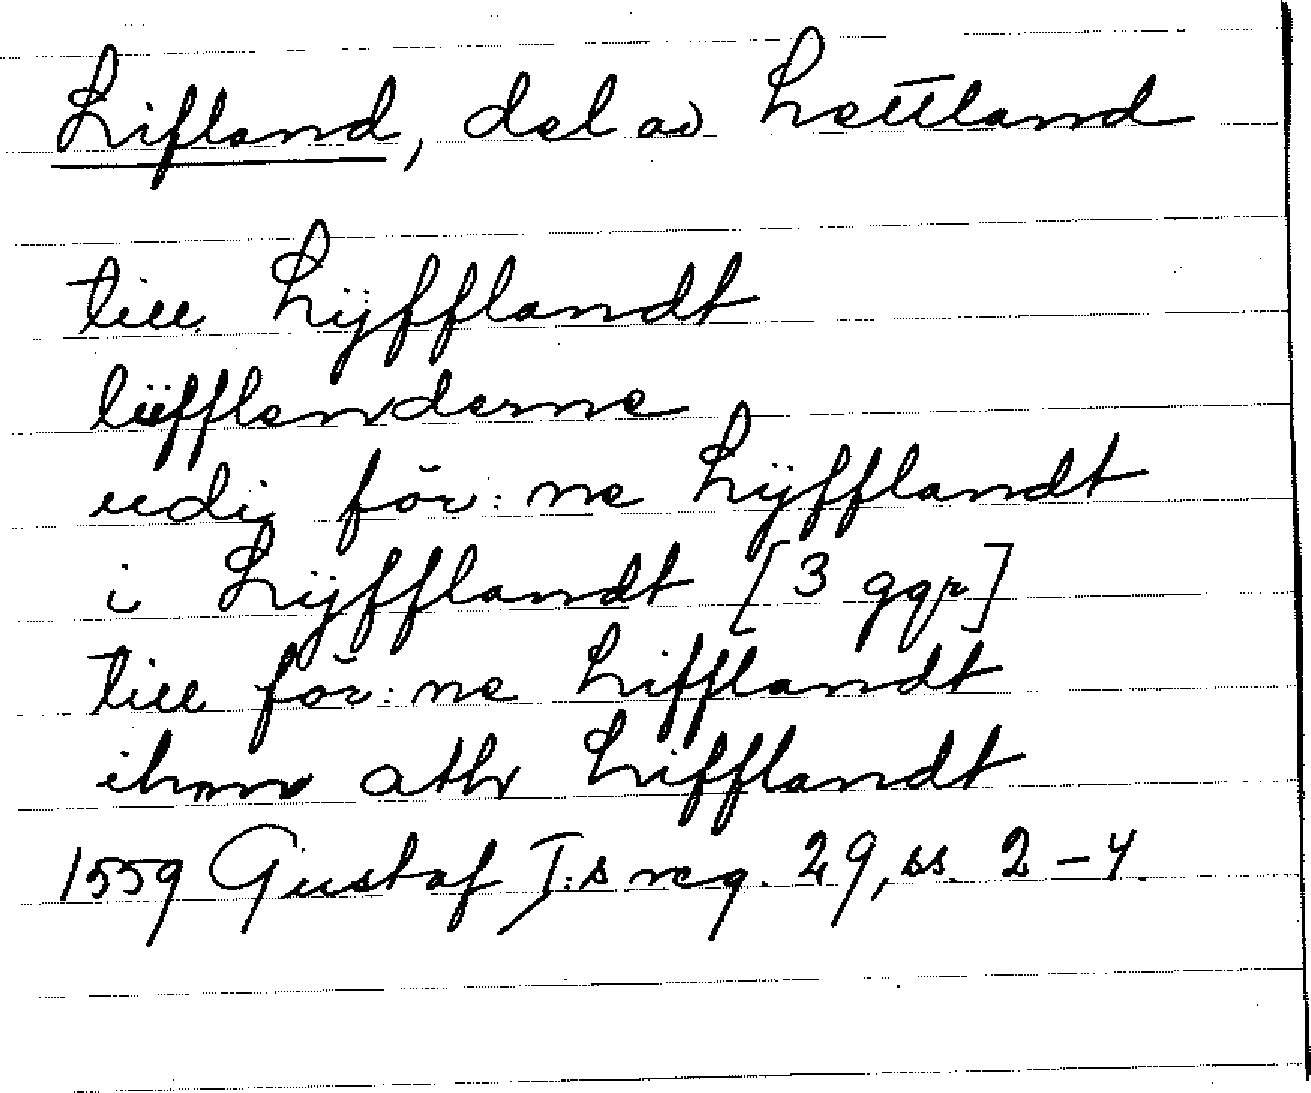 Lifland, del av Lettland
till Lÿfflandt
lüfflenderne
udi för:ne Lÿfflandt
i Lÿfflandt [3 ggr]
till för:ne Lifflandt
ihnn athr Lifflandt
1559 Gustaf I:s reg. 29, ss. 2-4.